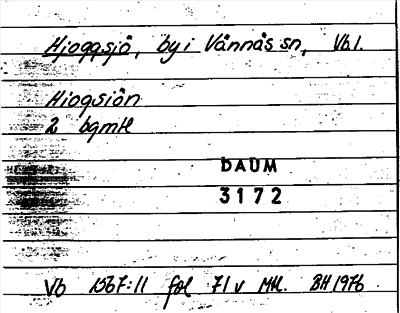 Hjoggsjö, by i Vännäs sn, Vb.l.
Hiogsiön
2 bgmtl
DAUM
3172
Vb 1567:11 fol 71 v Mtl. BH 1976